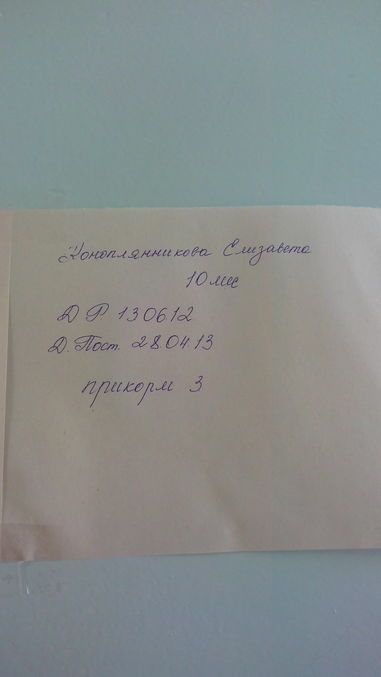 Коноплянникова Елизавета
10 мес
Д Р 130612
Д. Пост. 280413
прикорм 3